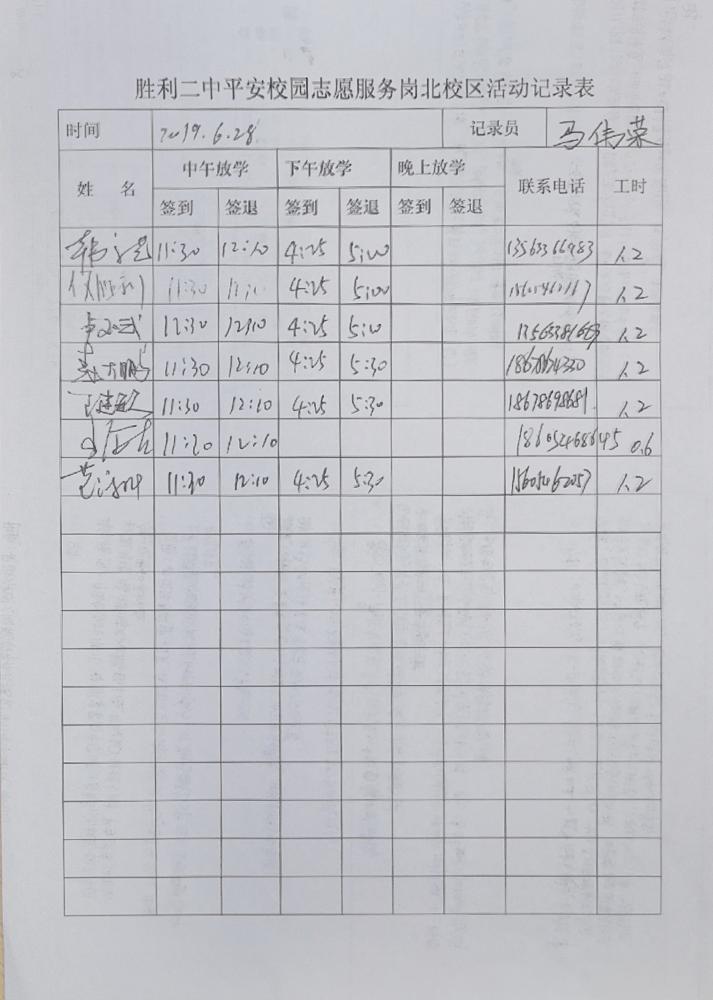 胜利二中平安校园志愿服务岗北校区活动记录表
时间 2019.6.28 记录员 马伟荣
姓 名 中午放学 下午放学 晚上放学 联系电话 工时
签到 签退 签到 签退 签到 签退
11:30 12:10 4:25 5:00 13563366983 1.2
11:30 4:25 5:00 1.2
12:30 12:10 4:25 5:00 1.2
11:30 12:10 4:25 5:30 1.2
11:30 12:10 4:25 5:30 18678698681 1.2
11:30 12:10 0.6
范 11:30 12:10 4:25 5:30 15605462057 1.2